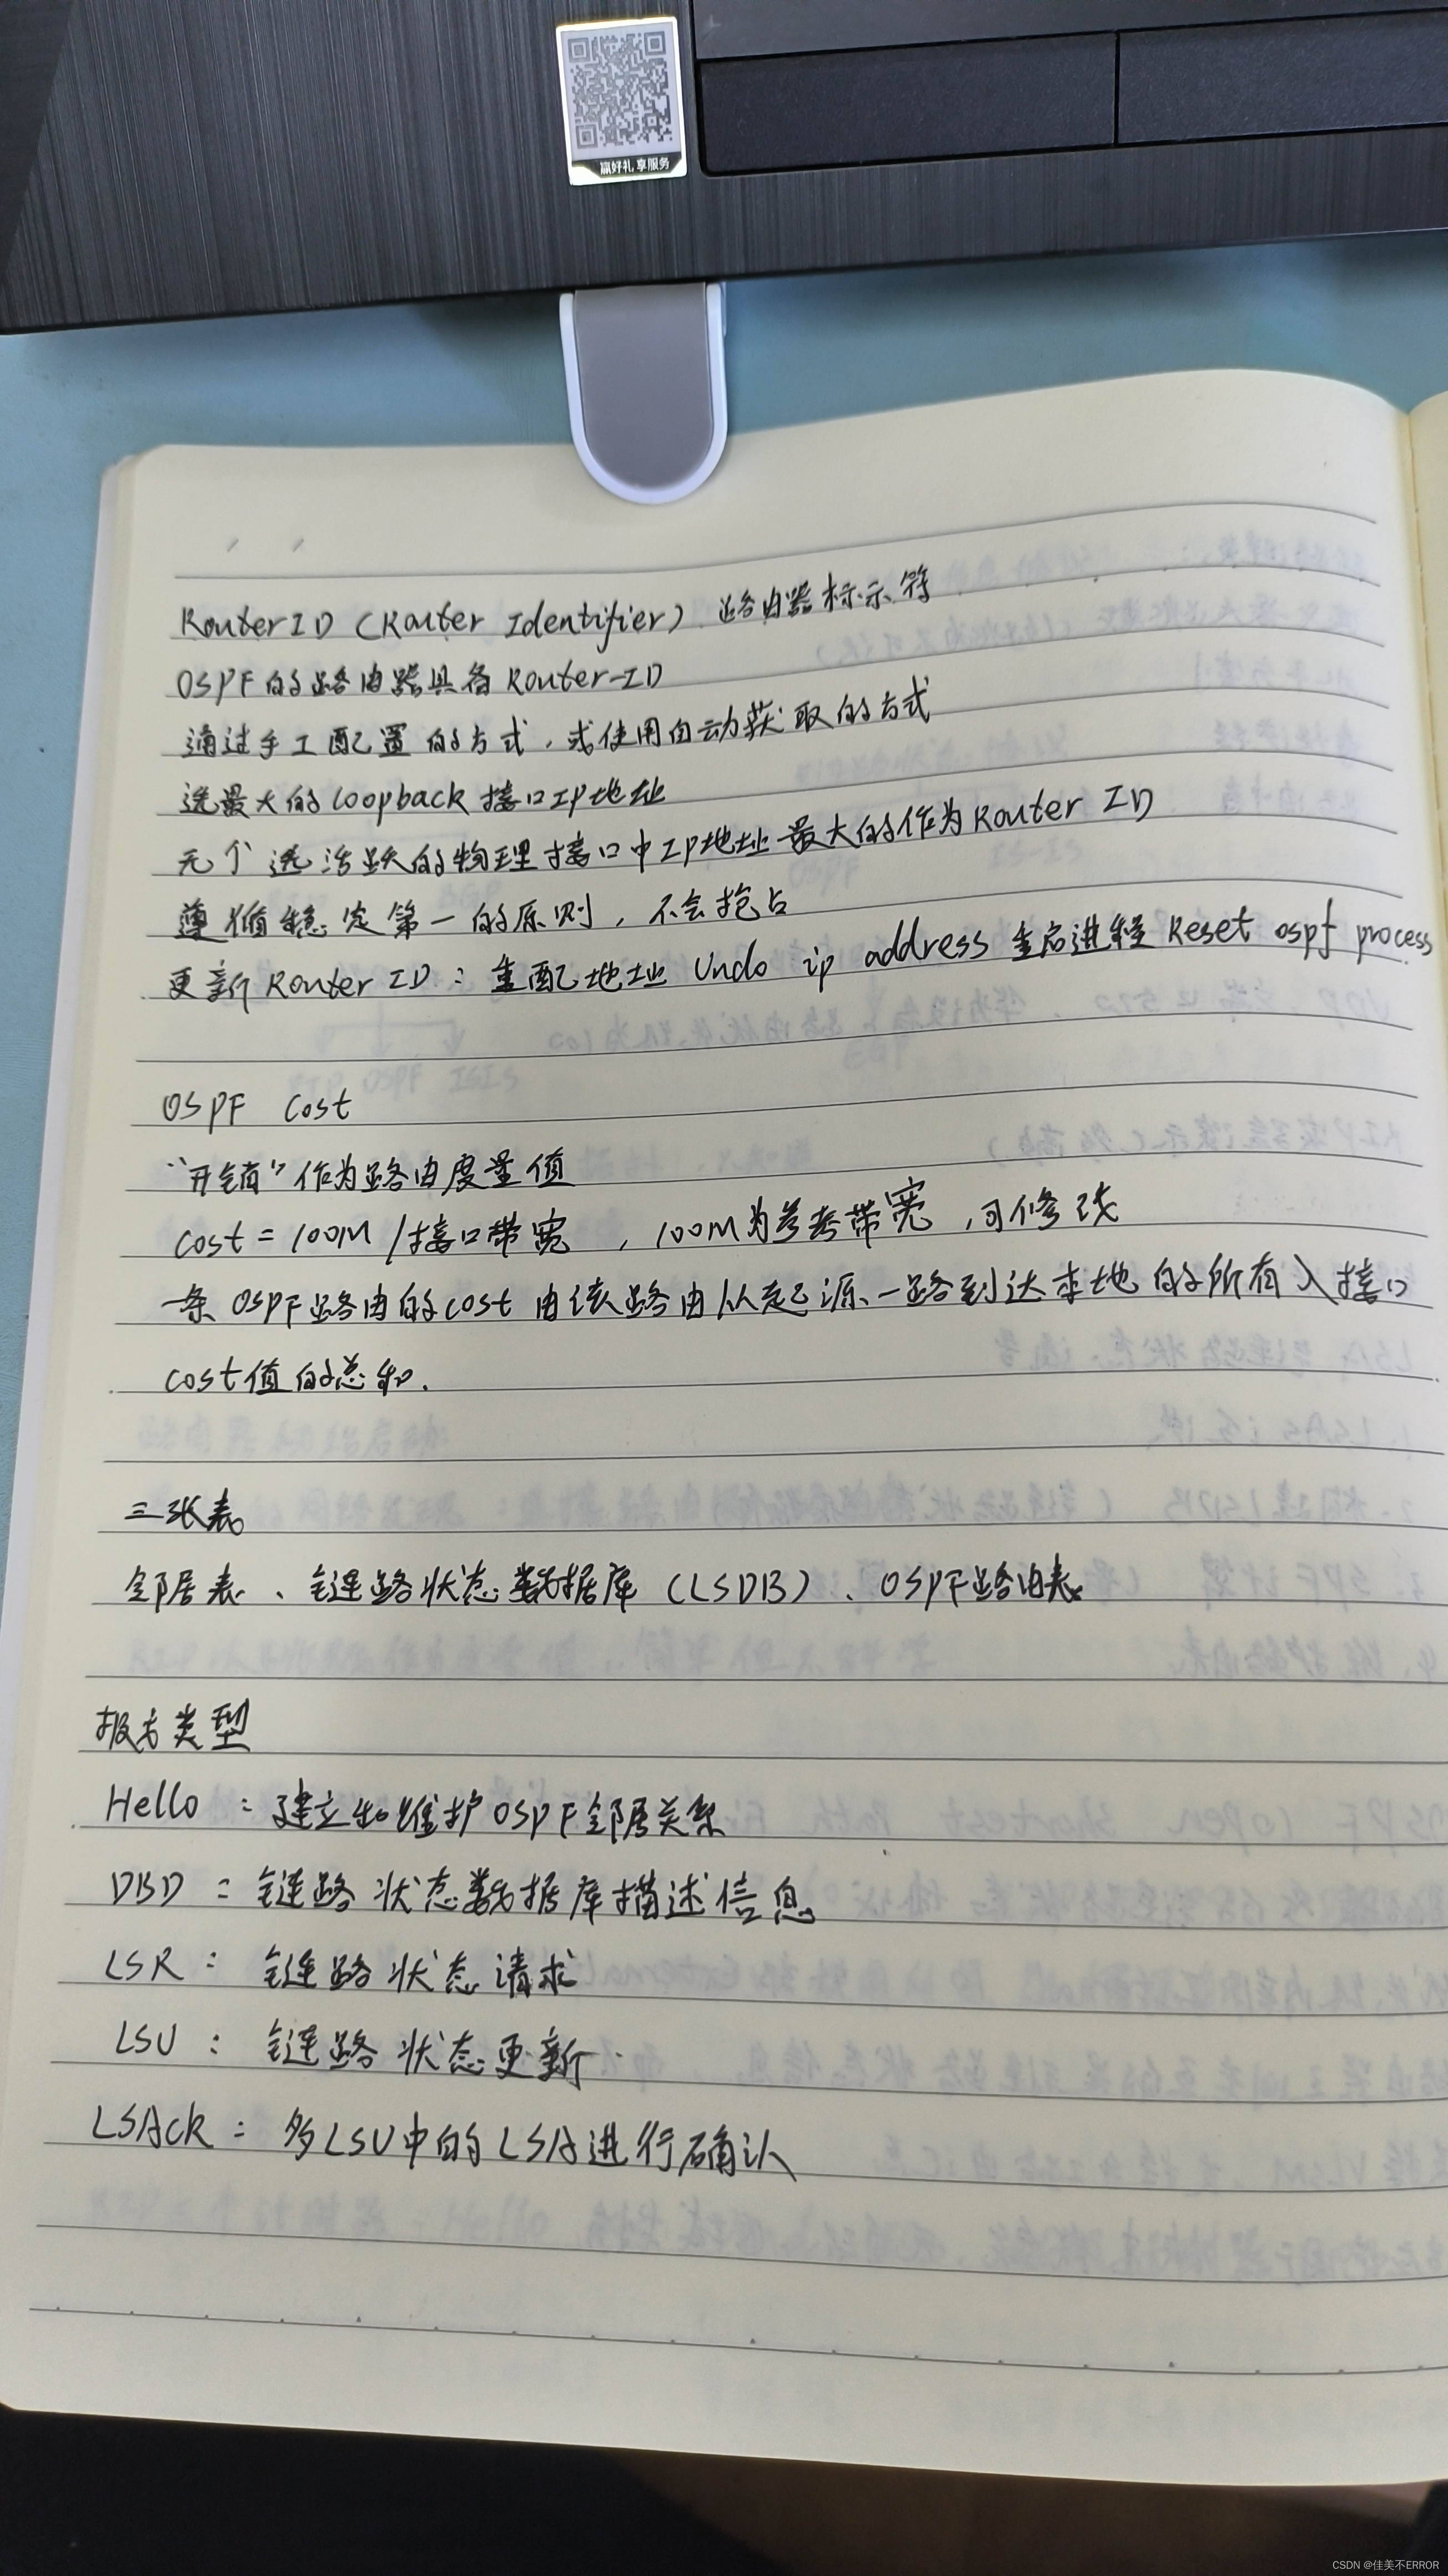 赢好礼 享服务
RouterID (Router Identifier) 路由器标示符
OSPF的路由器具备Router-ID
通过手工配置的方式，或使用自动获取的方式
选最大的Loopback接口IP地址
无个选活跃的物理接口中IP地址最大的作为Router ID
遵循稳定第一的原则，不会抢占
更新Router ID：重配地址 Undo ip address 重启进程 Reset ospf process
OSPF Cost
“开销”作为路由度量值
Cost = 100M / 接口带宽 ，100M为参考带宽，可修改
一条OSPF路由的cost由该路由从起源一路到达本地的所有入接口
cost值的总和.
三张表
邻居表、链路状态数据库（LSDB）、OSPF路由表
报文类型
Hello：建立和维护OSPF邻居关系
DBD：链路状态数据库描述信息
LSR：链路状态请求
LSU：链路状态更新
LSAck：多LSU中的LSA进行确认
CSDN @佳美不ERROR